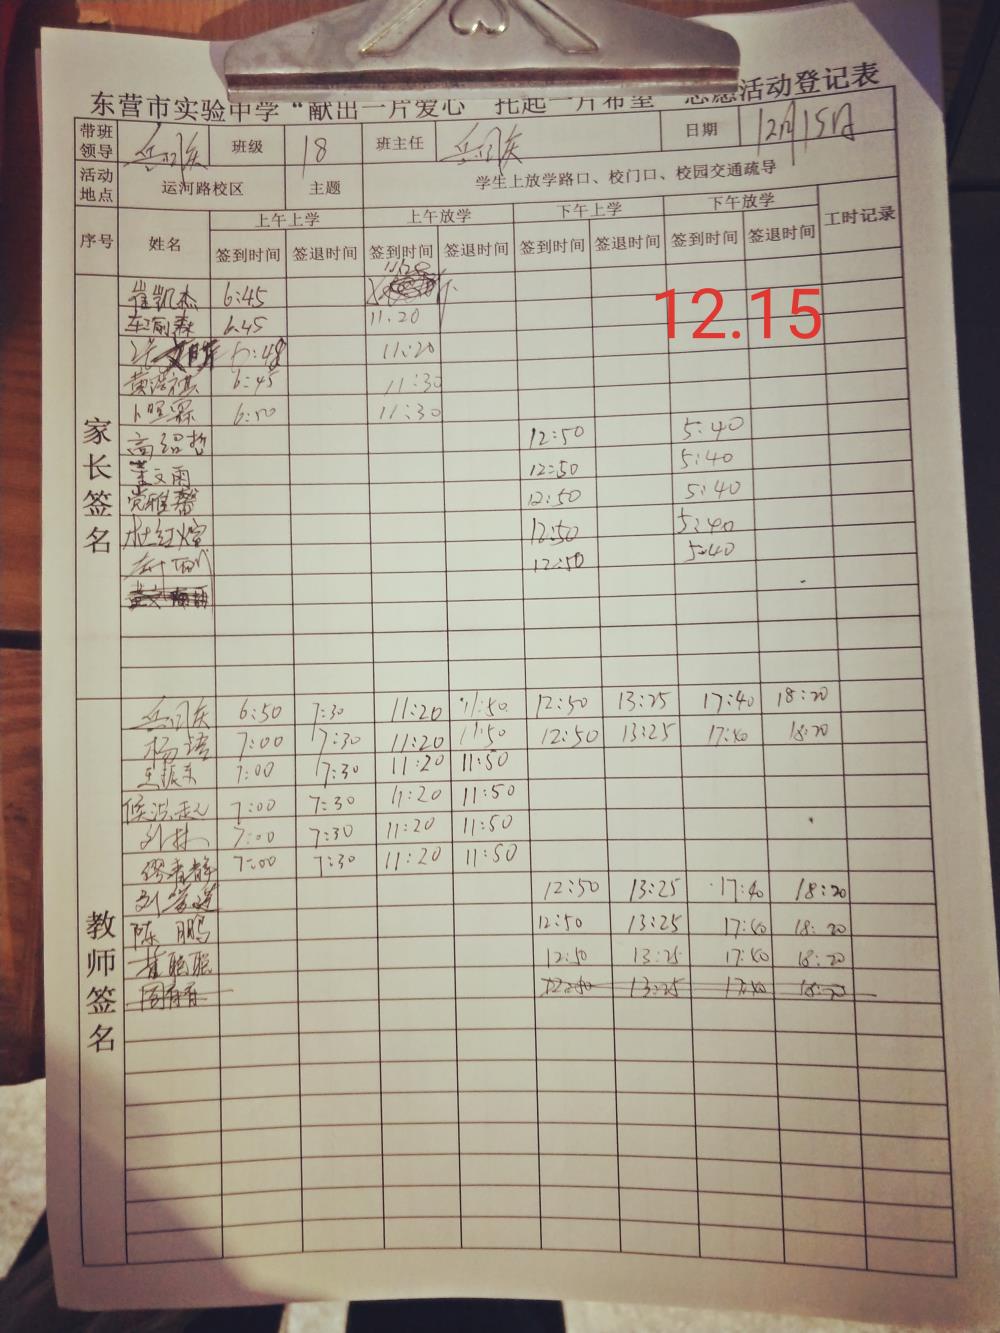 东营市实验中学“献出一片爱心 托起一片希望”志愿活动登记表
带班领导 班级 18 班主任 日期 12月15日
活动地点 运河路校区 主题 学生上放学路口、校门口、校园交通疏导
序号 姓名 上午上学 上午放学 下午上学 下午放学 工时记录
签到时间 签退时间 签到时间 签退时间 签到时间 签退时间 签到时间 签退时间
12.15
家长签名
崔凯杰 6:45 11:20
6:45 11:20
6:48 11:20
黄浩祺 6:45 11:30
卜昱霖 6:50 11:30
高绍哲 12:50 5:40
董文雨 12:50 5:40
党雅馨 12:50 5:40
杜红煊 12:50 5:40
12:50 5:40
教师签名
6:50 7:30 11:20 11:50 12:50 13:25 17:40 18:20
杨 7:00 7:30 11:20 11:50 12:50 13:25 17:40 18:20
王振东 7:00 7:30 11:20 11:50
7:00 7:30 11:20 11:50
刘林 7:00 7:30 11:20 11:50
缪春静 7:00 7:30 11:20 11:50
刘 12:50 13:25 17:40 18:20
陈鹏 12:50 13:25 17:40 18:20
崔聪聪 12:50 13:25 17:40 18:20
12:50 13:25 17:40 18:20